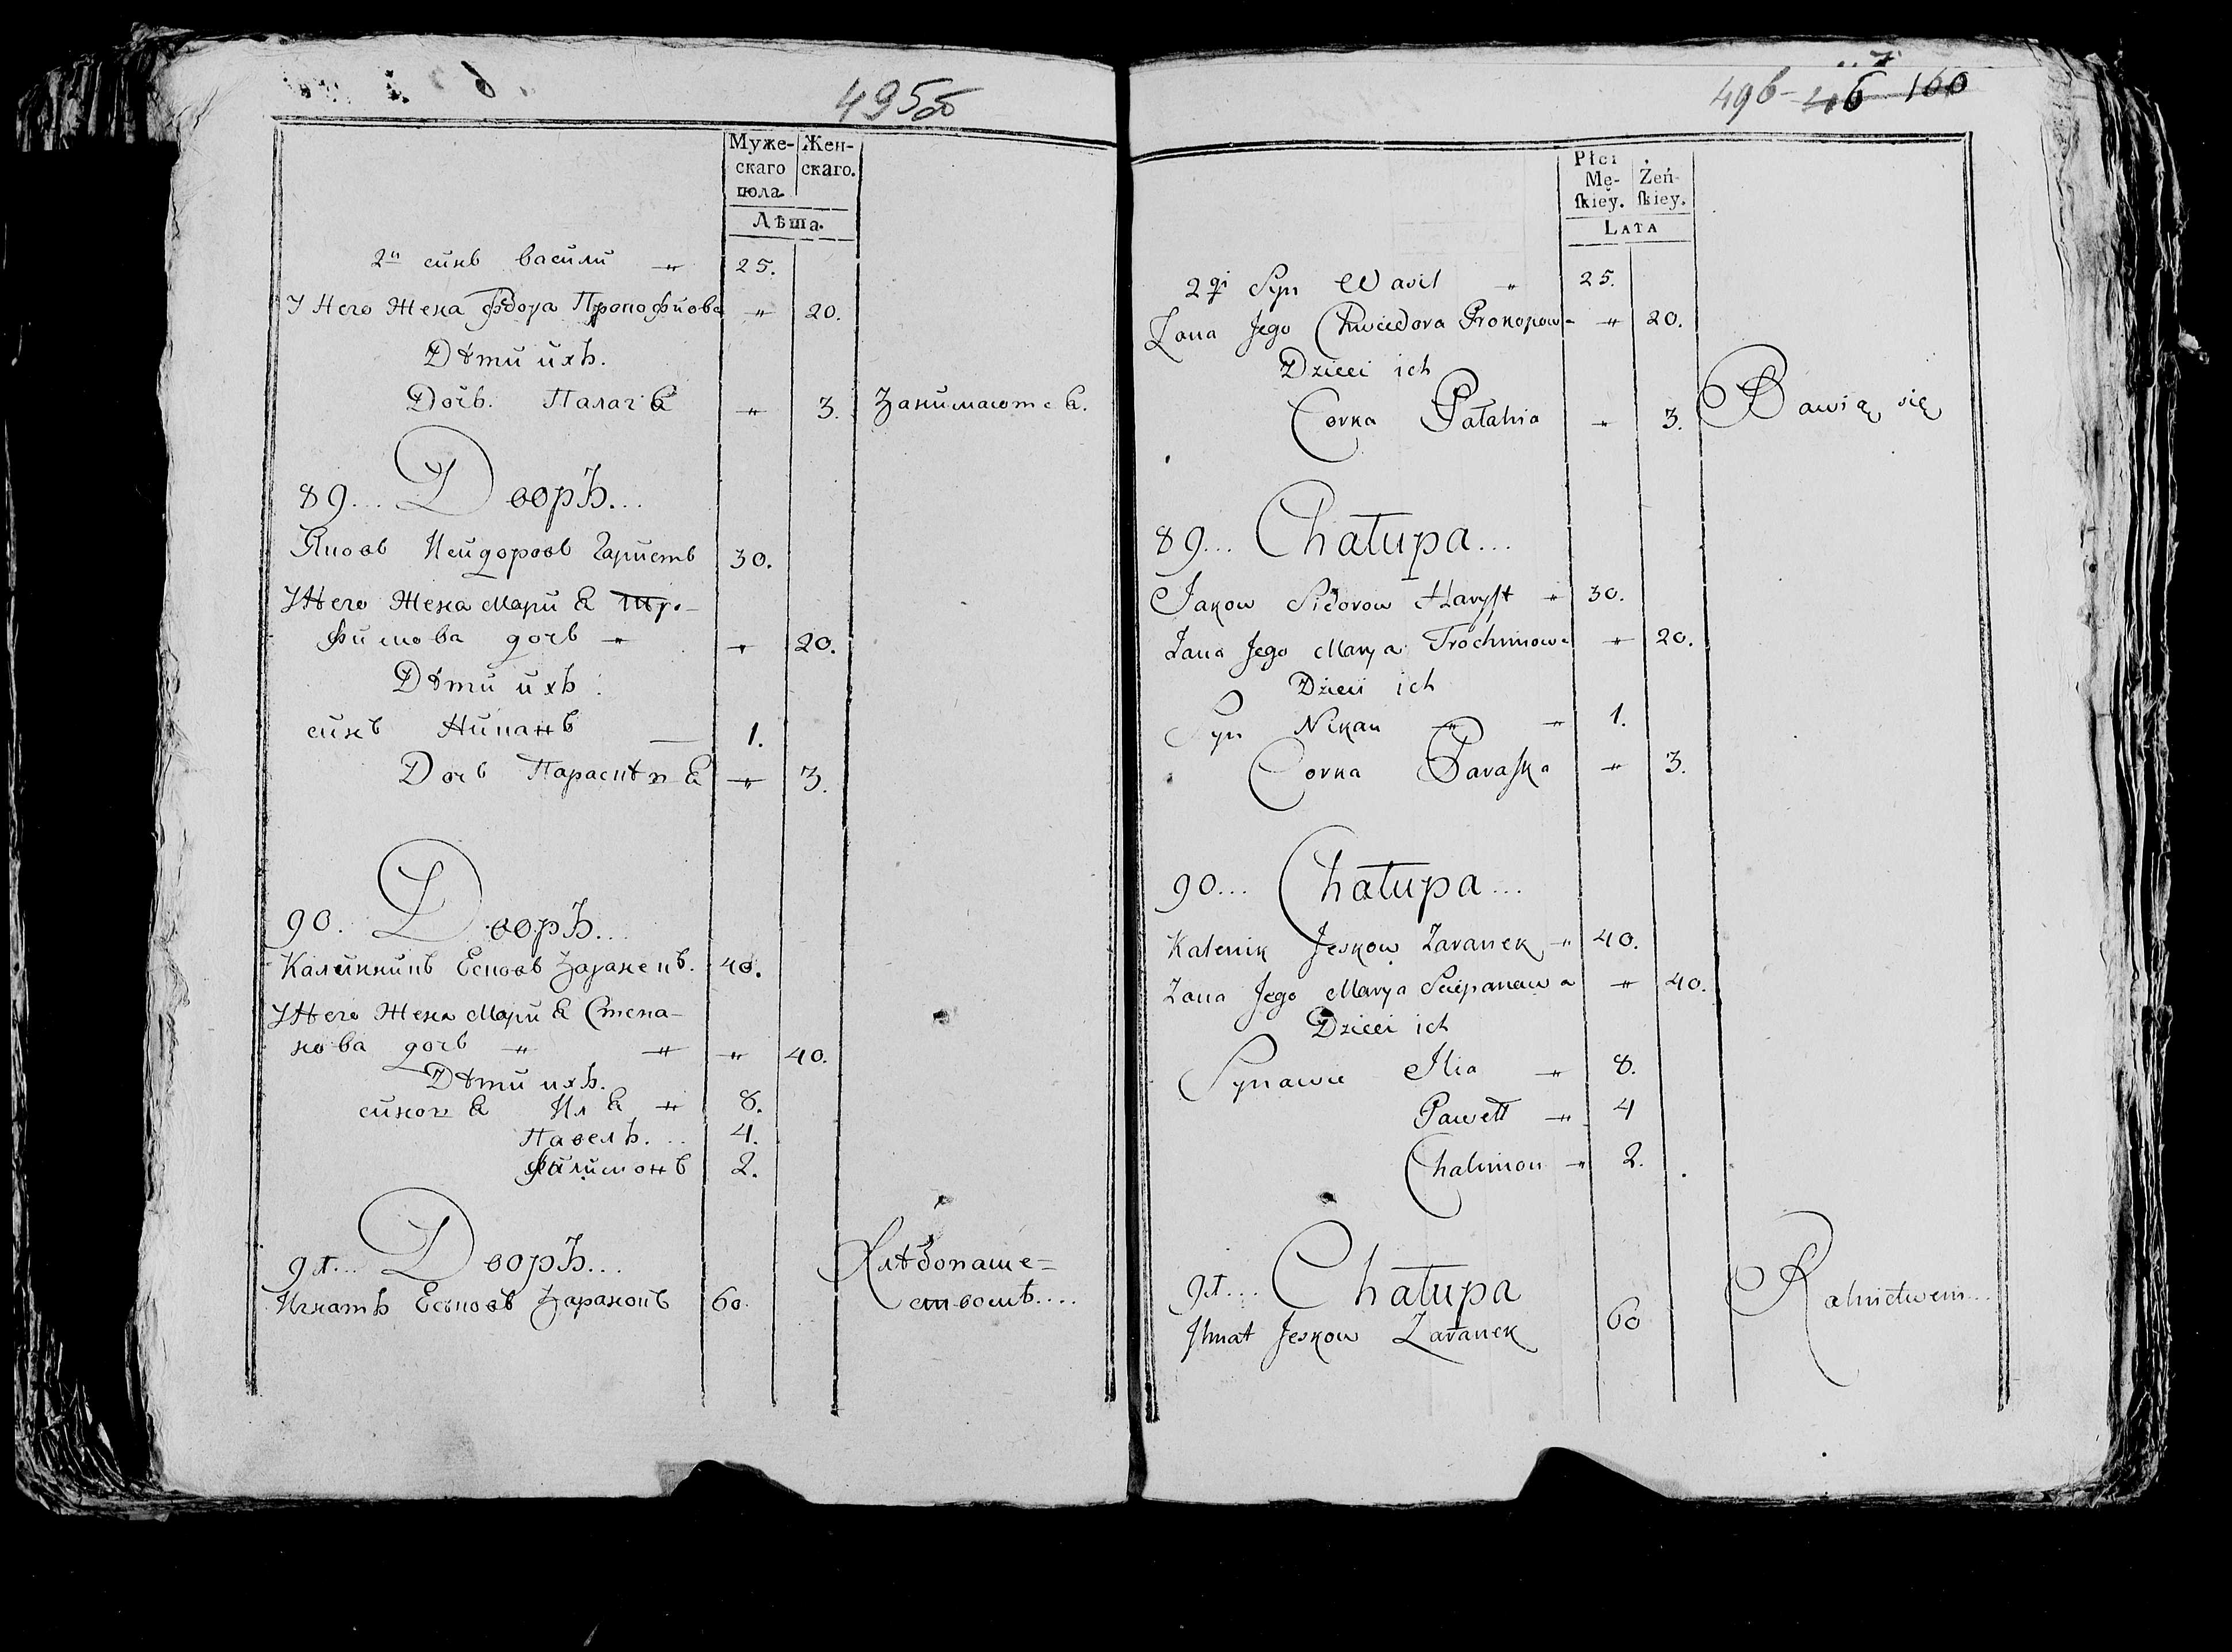 495 об
Муже- Жен-
скаго скаго.
пола.
Лѣта.
2й синъ василй 〃 25.
У Него Жена Фѣдора Прокофиова 〃 20.
Дѣти ихъ.
Дочь. Палагея 〃 3. Занимаются.
89... Дворъ...
Яковъ Исидоровъ Гаристъ 30.
У Него Жена Мария Тро-
фимова дочь 〃 〃 20.
Дѣти ихъ.
синъ Никанъ 1.
Дочь Парасковея 〃 3.
90. Дворъ...
Калинникъ Есковъ Заранекъ. 40.
У Него Жена Мария Степа-
нова дочь 〃 〃 〃 40.
Дѣти ихъ.
синовя Иля 〃 8.
Павелъ... 4.
Филимонъ 2.
91... Дворъ... Хлѣбопаше=
Игнатъ Есковъ Заранекъ 60. ствомъ....
496 46 160
Płci
Mę- Żeń-
ſkiey. ſkiey.
LATA
2gi Syn Wasil 〃 25.
Żona Jego Chwiedora Prokopowa 〃 20.
Dzieci ich
Corka Pałahia 〃 3. Bawią się
89... Chałupa...
Jakow Sidorow Haryſt 〃 30.
Żona Jego Marya Trochimowa 〃 20.
Dzieci ich
Syn Nikan 〃 〃 1.
Corka Paraſka 〃 3.
90... Chałupa...
Kalenik Jeskow Zaranek 〃 40.
Żona Jego Marya Sciepanawa 〃 40.
Dzieci ich
Synawie Ilia 〃 8.
Pawełł 〃 4
Chalimon 〃 2.
91... Chałupa
Ihnat Jeskow Zaranek 60 Rolnictwem...